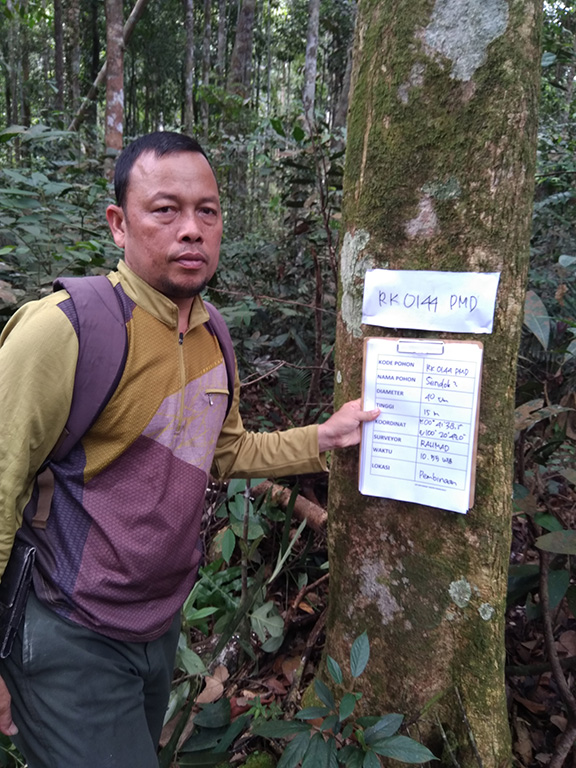 RK 0144 PMD
KODE POHON RK 0144 PMD
NAMA POHON Sendok2
DIAMETER 40 cm
TINGGI 15 m
KOORDINAT
SURVEYOR RALIMAD
WAKTU 10.55 WIB
LOKASI Pembinaan